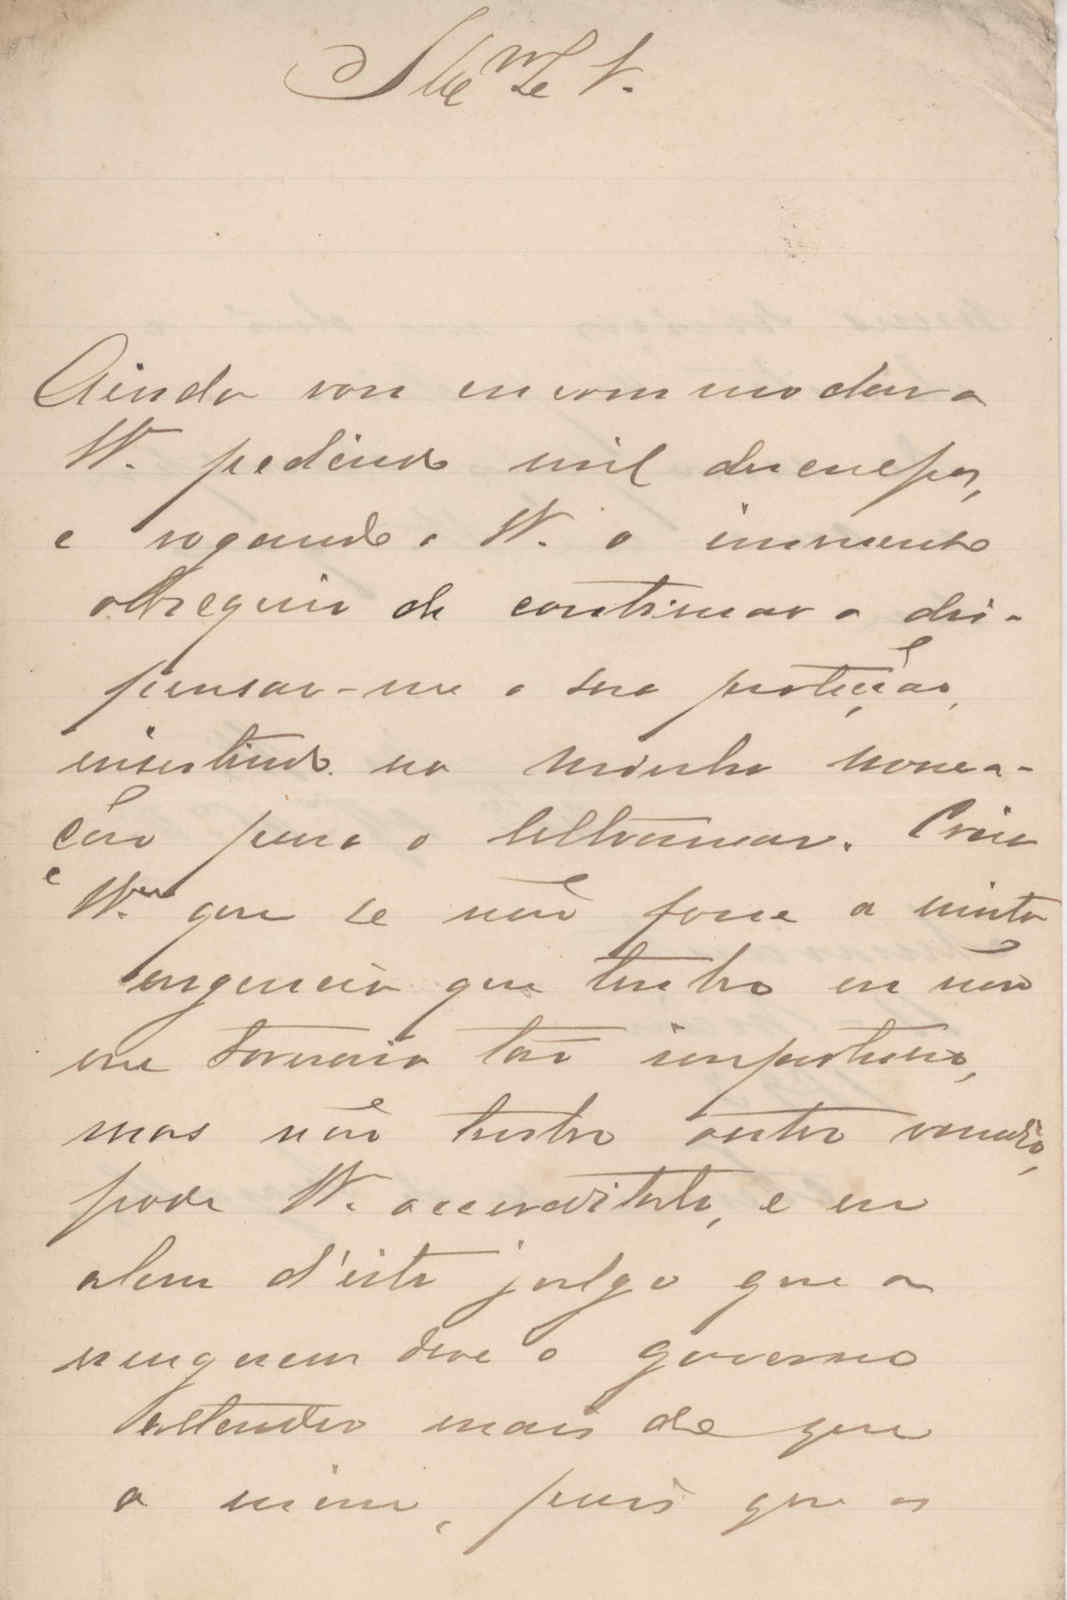 Illmo Sr.
Ainda vou encommodar a
V. pedindo mil desculpas,
e rogando a V. o immenso
obsequio de continuar a dis-
pensar-me a sua proteção,
insistindo na minha nomea-
ção para o Ultramar. Creia
V. que se não fosse a muita
urgencia que tenho eu não
me tornaria tão importuno,
mas não tenho outro remedio,
pode V. accreditalo, e eu
alem d'isto julgo que a
ninguem deve o governo
attender mais do que
a mim, pois que os